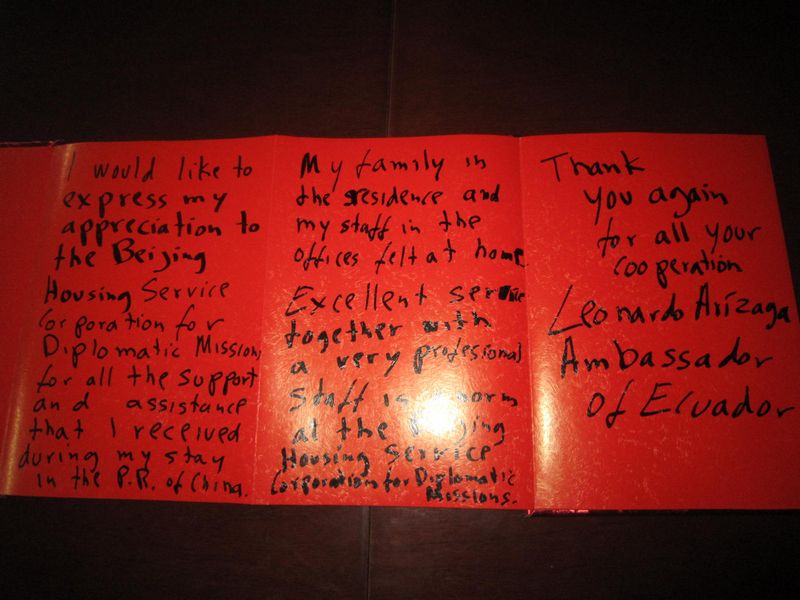 I would like to
express my
appreciation to
the Beijing
Housing Service
Corporation for
Diplomatic Missions
for all the support
and assistance
that I received
during my stay
in the P.R. of China.
My family in
the residence and
my staff in the
offices felt at home
Excellent service
together with
a very profesional
staff is a norm
at the Beijing
Housing Service
Corporation for Diplomatic
Missions.
Thank
you again
for all your
cooperation
Leonardo Arízaga
Ambassador
Of Ecuador